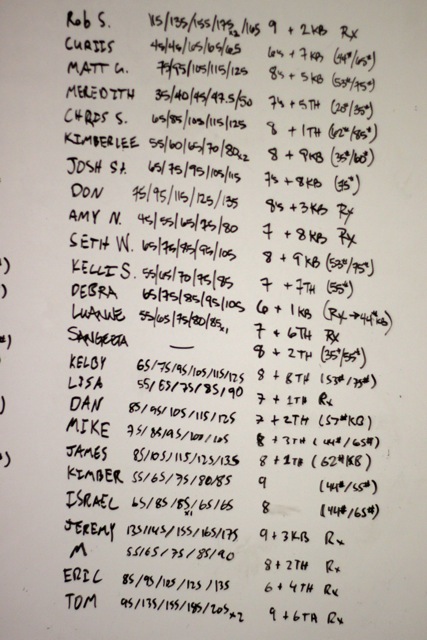 )
)
#)
)
)
Rob S. 115/135/155/175x2/165 9 + 2KB Rx
CURTIS 45/45/65/65/65 6's + 7KB (44#/65#)
MATT G. 75/95/105/115/125 8's + 5KB (53#/75#)
MEREDITH 35/40/45/47.5/50 7's + 5TH (20#/35#)
CHRIS S. 65/85/105/115/125 8 + 1TH (62#/85#)
KIMBERLEE 55/60/65/70/80x2 8 + 9KB (35#/60#)
JOSH SA. 65/75/95/105/115 7's + 8KB (75#)
DON 75/95/115/125/135 8's + 3KB Rx
AMY N. 45/55/65/75/80 7 + 8KB Rx
SETH W. 65/75/85/95/105 8 + 9KB (53#/75#)
KELLI S. 55/65/70/75/85 7 + 7TH (55#)
DEBRA 65/75/85/95/105 6 + 1KB (Rx → 44#KB)
LUANNE 55/65/75/80/85x1 7 + 6TH Rx
SANGEETA — 8 + 2TH (35#/55#)
KELBY 65/75/95/105/115/125 8 + 8TH (53#/75#)
LISA 55/65/75/85/90 7 + 1TH Rx
DAN 85/95/105/115/125 7 + 2TH (57#KB)
MIKE 75/85/95/100/105 8 + 3TH (44#/65#)
JAMES 85/105/115/125/135 8 + 1TH (62#KB)
KIMBER 55/65/75/80/85 9 (44#/55#)
ISRAEL 65/85/85x1/65/65 8 (44#/65#)
JEREMY 135/145/155/165/175 9 + 3KB Rx
M 55/65/75/85/90 8 + 2TH Rx
ERIC 85/95/105/125/135 6 + 4TH Rx
TOM 95/135/155/185/205x2 9 + 6TH Rx